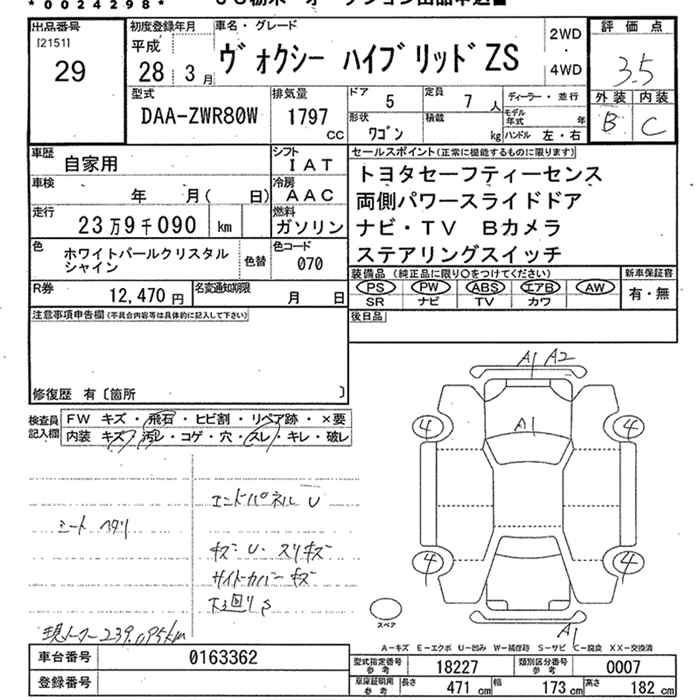 *0024298*
出品番号
[2151]
29
初度登録年月
平成
28 3月
車名・グレード
ヴォクシー ハイブリッドZS
2WD
・
4WD
評価点
3.5
外装 内装
B C
型式
DAA-ZWR80W
排気量
1797
cc
ドア
5
定員
7 人
形状
ワゴン
積載
kg
ディーラー・並行
モデル年式 年
ハンドル 左・右
車歴
自家用
シフト
IAT
車検
年 月( 日)
冷房
AAC
走行
23万9千090 km
燃料
ガソリン
色
ホワイトパールクリスタル
シャイン
色替
色コード
070
R券
12,470 円
名変通知期限
月 日
セールスポイント(正常に機能するものに限ります)
トヨタセーフティーセンス
両側パワースライドドア
ナビ・TV Bカメラ
ステアリングスイッチ
装備品 (純正品に限り○をつけてください)
PS PW ABS エアB AW
SR ナビ TV カワ
新車保証書
有・無
後日品
注意事項申告欄(不具合内容等は具体的に記入して下さい)
修復歴 有〔箇所 〕
検査員
記入欄
FW キズ・飛石・ヒビ割・リペア跡・×要
内装 キズ・汚レ・コゲ・穴・スレ・キレ・破レ
エンドパネル U
シート ヘタリ
キズ U・スリキズ
サイドカバー キズ
下廻りS
現メーター 239,095km
A1 A2
A1
4 4
4 4
A1
スペア
A－キズ E－エクボ U－凹み W－補修跡 S－サビ C－腐食 XX－交換済
車台番号
0163362
登録番号
型式指定番号
参考
18227
類別区分番号
参考
0007
車庫証明用
参考
長さ 471 cm 幅 173 cm 高さ 182 cm